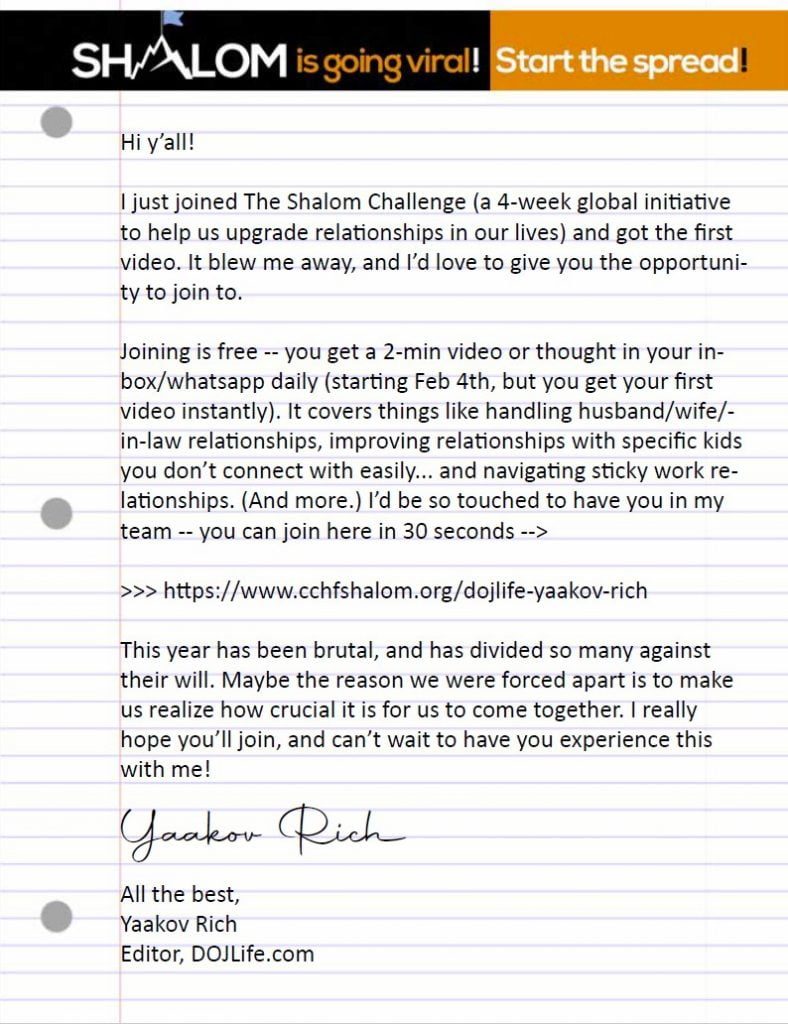 SHALOM is going viral! Start the spread!
Hi y’all!
I just joined The Shalom Challenge (a 4-week global initiative
to help us upgrade relationships in our lives) and got the first
video. It blew me away, and I’d love to give you the opportuni-
ty to join to.
Joining is free -- you get a 2-min video or thought in your in-
box/whatsapp daily (starting Feb 4th, but you get your first
video instantly). It covers things like handling husband/wife/-
in-law relationships, improving relationships with specific kids
you don’t connect with easily... and navigating sticky work re-
lationships. (And more.) I’d be so touched to have you in my
team -- you can join here in 30 seconds -->
>>> https://www.cchfshalom.org/dojlife-yaakov-rich
This year has been brutal, and has divided so many against
their will. Maybe the reason we were forced apart is to make
us realize how crucial it is for us to come together. I really
hope you’ll join, and can’t wait to have you experience this
with me!
Yaakov Rich
All the best,
Yaakov Rich
Editor, DOJLife.com